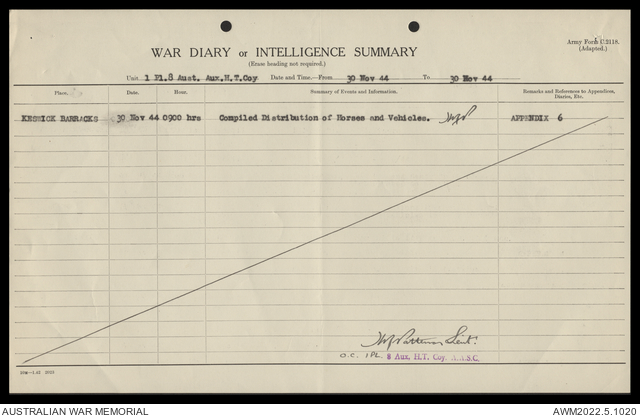 Army Form C.2118.
(Adapted.)
WAR DIARY or INTELLIGENCE SUMMARY
(Erase heading not required.)
Unit 1 Pl.8 Aust. Aux.H.T.Coy Date and Time—From 30 Nov 44 To 30 Nov 44
Place. Date. Hour. Summary of Events and Information. Remarks and References to Appendices, Diaries, Etc.
KESWICK BARRACKS 30 Nov 44 0900 hrs Compiled Distribution of Horses and Vehicles. APPENDIX 6
Lieut.
O.C. 1 PL. 8 Aux. H.T. Coy. A.A.S.C.
AUSTRALIAN WAR MEMORIAL AWM2022.5.1020